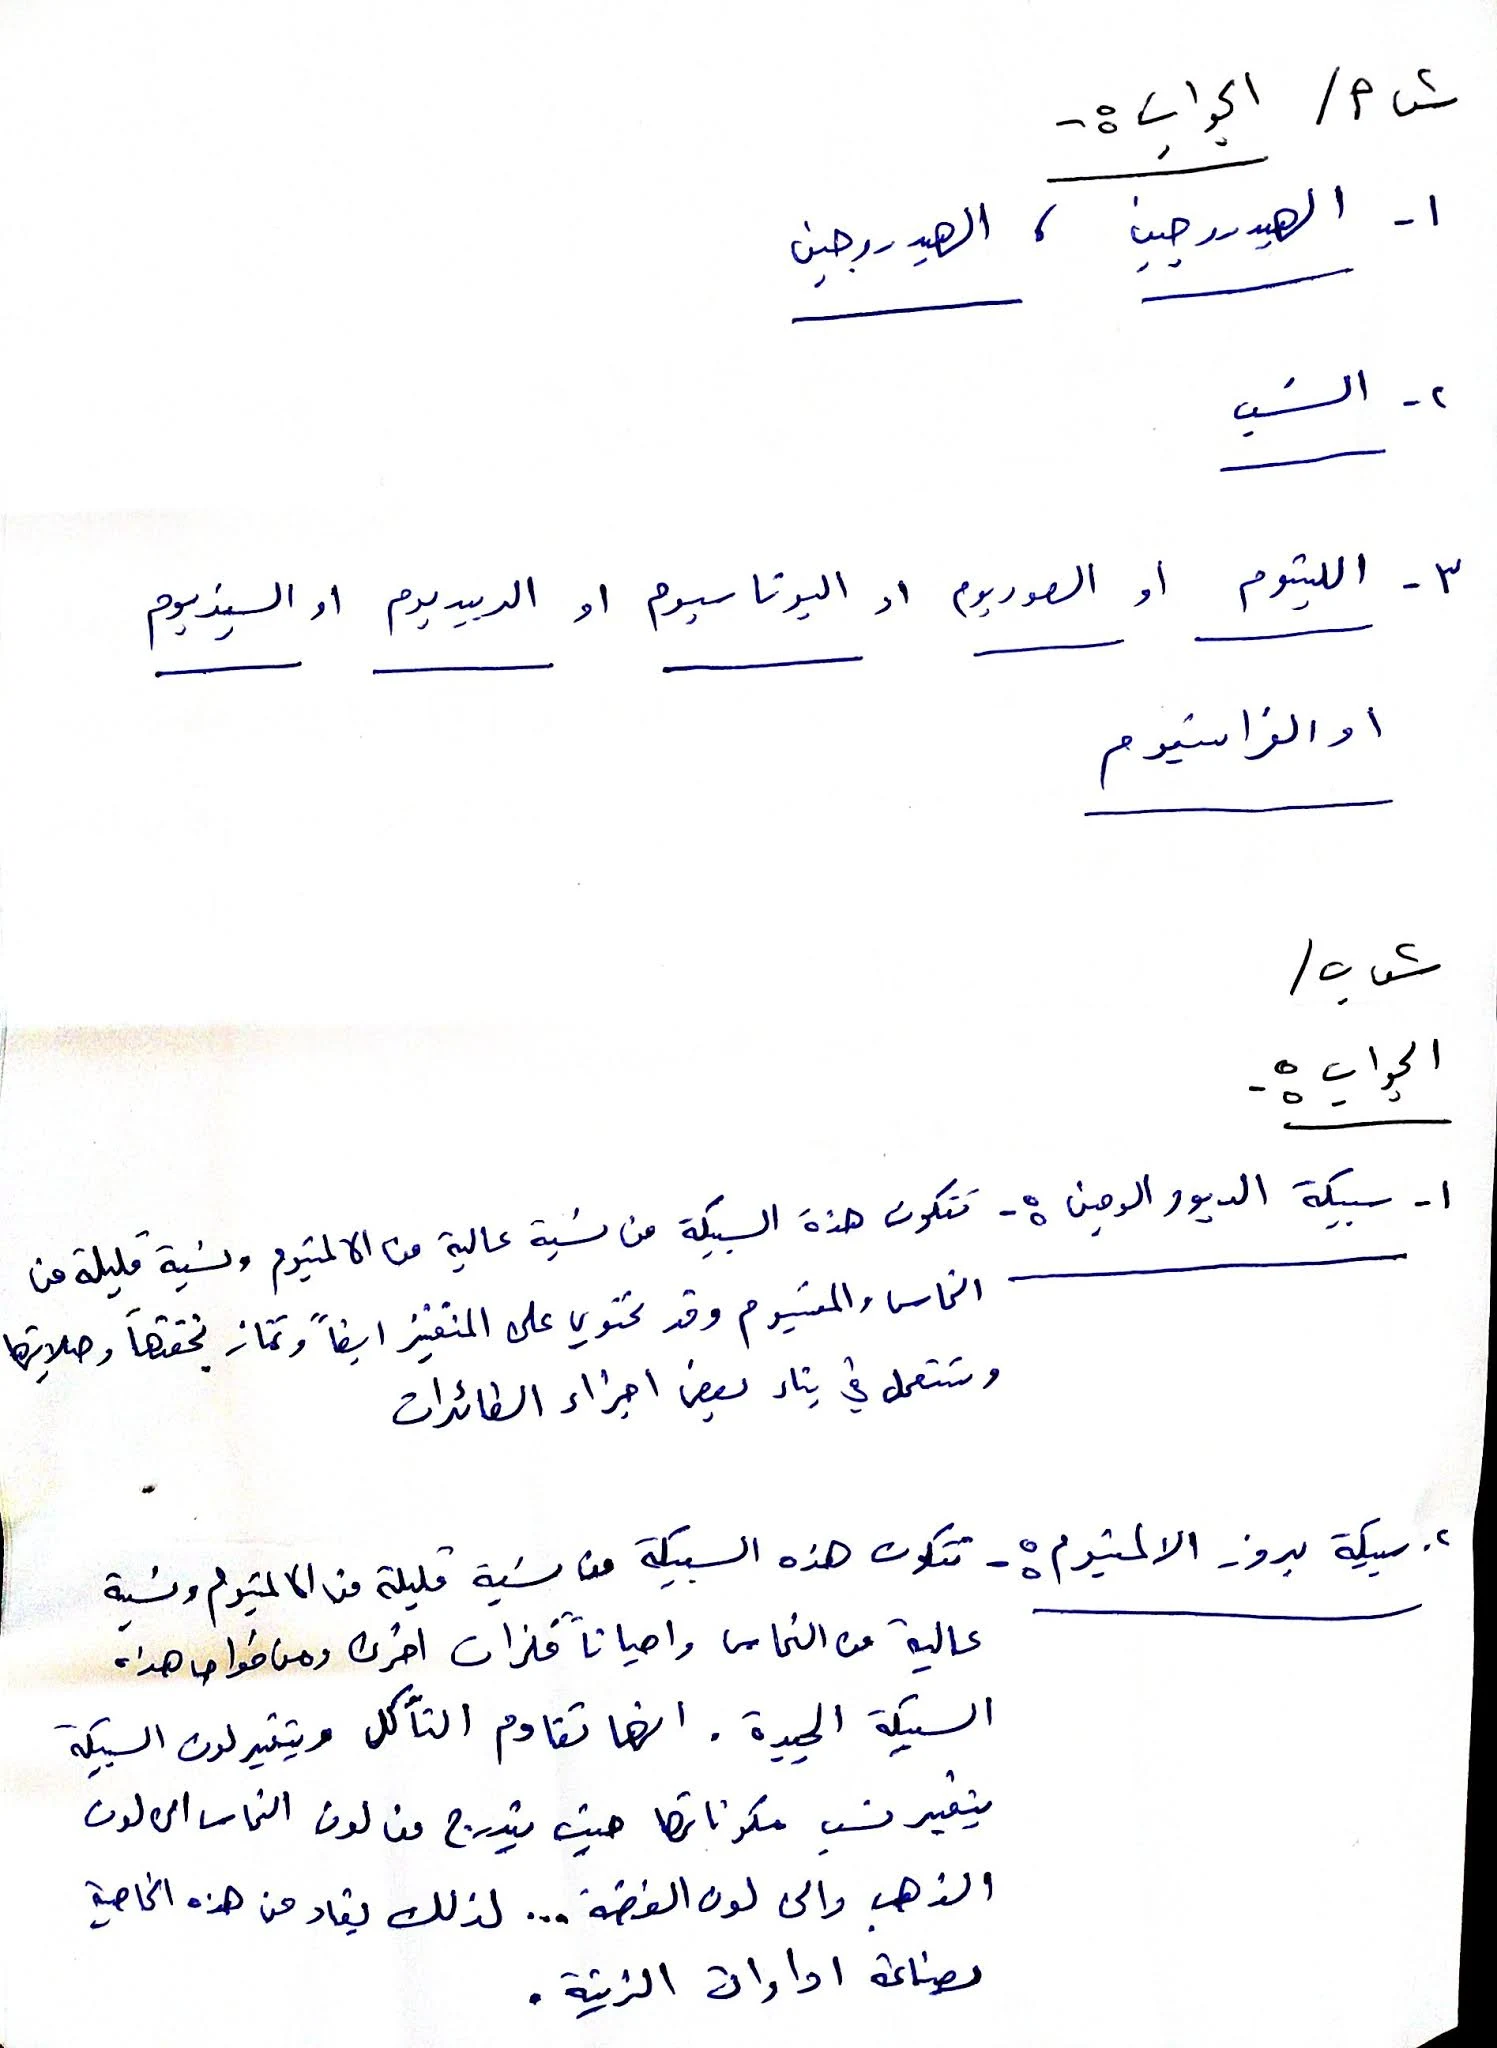 س٢ م/ الجواب :-
١- الهيدروجين ، الهيدروجين
٢- الشب
٣- الليثيوم أو الصوديوم او البوتاسيوم او الربيديوم او السيزيوم
او الفرانسيوم
س٢ ب/
الجواب :-
١- سبيكة الديورالومين :- تتكون هذه السبيكة من نسبة عالية من الالمنيوم ونسبة قليلة من
النحاس والمغنيسوم وقد تحتوي على المنغنيز ايضاً وتمتاز بخفتها وصلابتها
وتستعمل في بناء بعض اجزاء الطائرات
٢- سبيكة برونز الالمنيوم :- تتكون هذه السبيكة من نسبة قليلة من الالمنيوم ونسبة
عالية من النحاس واحياناً فلزات اخرى ومن خواص هذه
السبيكة الجيدة . انها تقاوم التآكل ويتغير لون السبيكة
بتغير نسب مكوناتها حيث يتدرج من لون النحاس الى لون
الذهب والى لون الفضة ... لذلك يفاد من هذه الخاصية
بصناعة ادوات الزينة .